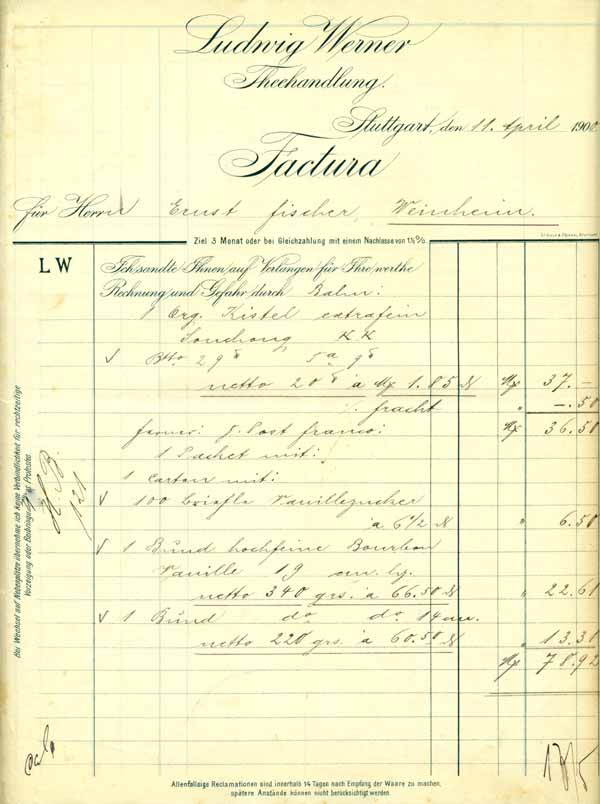 Ludwig Werner
Theehandlung.
Stuttgart, den 11. April 1900.
Factura
für Herrn Ernst Fischer, Weinheim.
Ziel 3 Monat oder bei Gleichzahlung mit einem Nachlasse von 1½%
L W
Ich sandte Ihnen auf Verlangen für Ihre werthe
Rechnung und Gefahr durch Bahn:
Org. Kistel extrafein
Souchong K K
Btto 29 9
netto 20 à M 1.85 M 37.–
fracht " –.50
ferner: p. Post franco: M 36.50
1 Packet mit:
1 Carton mit:
100 Vanillezucker
à 6 1/2 " 6.50
1 Bund hochfeine Bourbon
Vanille 19 cm. lg.
netto 340 grs. à 66.50 " 22.61
1 Bund do do 14 cm.
netto 220 grs. à 60.50 " 13.31
M 78.92
Bei Wechsel auf Nebenplätze übernehme ich keine Verbindlichkeit für rechtzeitige
Vorzeigung oder Beibringung Protestes
121
Allenfallsige Reclamationen sind innerhalb 14 Tagen nach Empfang der Waare zu machen,
spätere Anstände können nicht berücksichtigt werden.